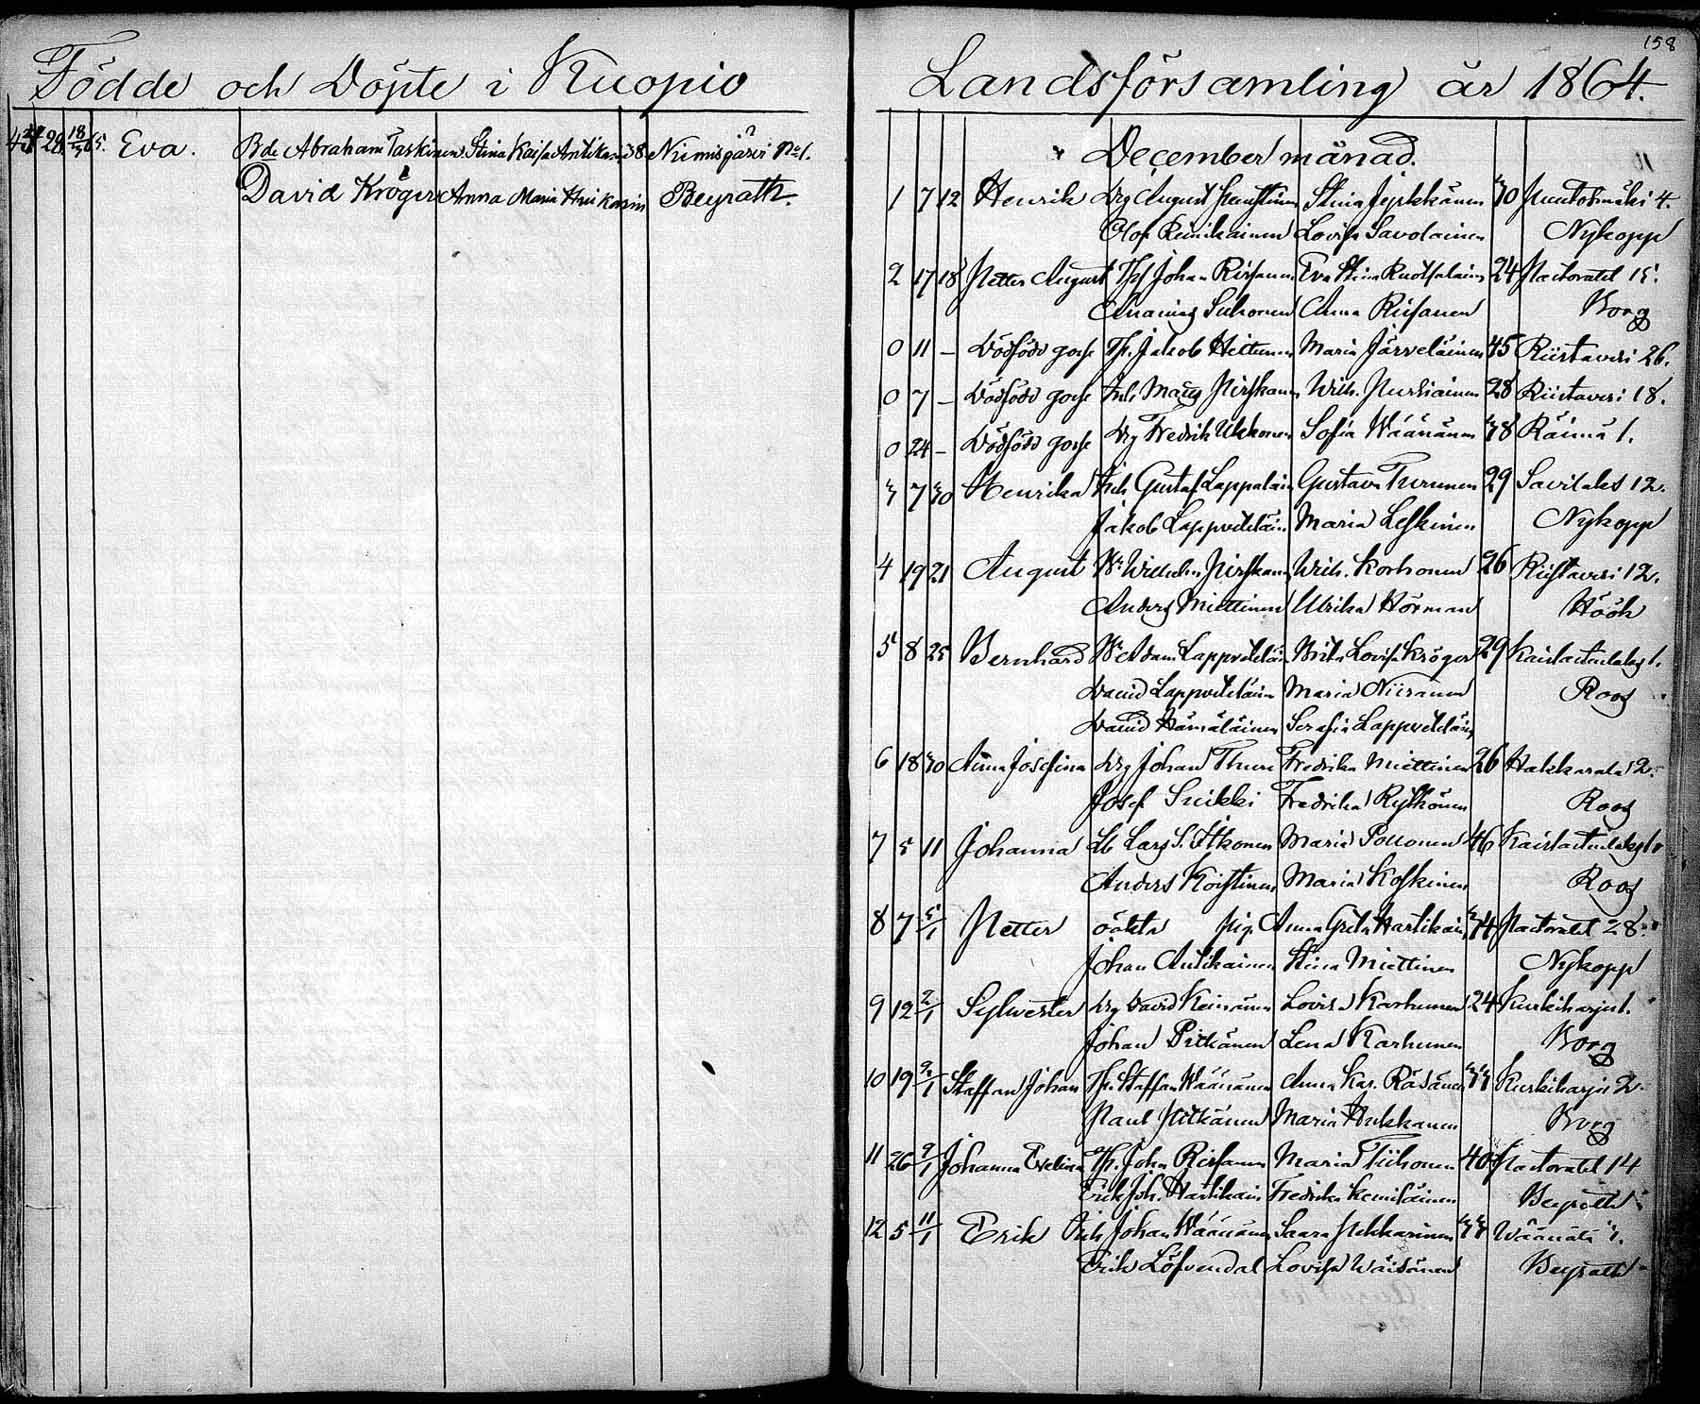 Födde och Döpte i Kuopio
28 18/3 65. Eva. Bde Abraham Taskinen Stina Kaisa Antikain 38 Niemisjärvi No 1.
David Kröger Anna Maria Beyrath.
158
Landsförsamling år 1864.
December månad.
1 7 12 Henrik Drg August Stina Jepkkänen 30 4.
Olof Reinikainen Lovisa Savolainen Nykopp
2 17 18 Petter August Johan Rissanen Eva Stina Ruotsalain 24 Pastoratet 15.
Suhonen Anna Rissanen Borg
0 11 – Dödfödd gosse Th. Jakob Hiltunen Maria Järveläinen 45 Riistavesi 26.
0 7 – Dödfödd gosse Inh. Mats Pirskanen Wilh. Pursiainen 28 Riistavesi 18.
0 24 – Dödfödd gosse Drg Fredrik Ukkonen Sofia Wäänänen 38 Räimä 1.
3 7 30 Henrika Inh Gustaf Lappalain Gustava Turunen 29 Savilaks 12.
Jakob Lappveteläin Maria Leskinen Nykopp
4 19 21 August Wilhelm Pirskanen Wilh. Korhonen 26 Riistavesi 12.
Anders Miettinen Ulrika Hörman Höök
5 8 25 Bernhard Adam Lappveteläin Brita Lovisa Kröger 29 1.
David Lappveteläin Maria Niiranen Roos
David Hämäläinen Serafia Lappveteläin
6 18 30 Anna Josefina Drg Johan Thure Fredrika Miettinen 26 Hakkarala 2.
Josef Suikki Fredrika Rytkönen Roos
7 5 11 Johanna Lb Lars S. Itkonen Maria 46 1.
Anders Koistinen Maria Koskinen Roos
8 7 5/1 Petter oäkta Pig. Anna Greta Hartikain 34 Pastoratet 28.
Johan Antikainen Stina Miettinen Nykopp
9 12 2/1 Sylwester Drg David Keinänen Lovisa Karhunen 24 Kurkiharju 1.
Johan Pitkänen Lena Karhunen Borg
10 19 2/1 Staffan Johan Th. Staffan Wäänänen Anna Kar. Räsänen 33 Kurkiharju 2.
Paul Pitkänen Maria Hukkanen Borg
11 26 9/1 Johanna Evelina Th. Joh. Rissanen Maria Tiihonen 40 Pastoratet 14
Erik Joh. Hartikain Fredrika Kemiläinen Beyrath
12 5 11/1 Erik Inh Johan Wäänänen Saara Pekkarinen 33 Wäänälä 3.
Erik Löfvendal Lovisa Wäisänen Beyrath